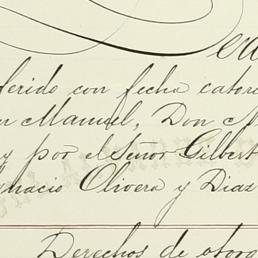 ferido con fecha cator
n Manuel, Don M
y por el Señor Gilbert
gnacio Olivera y Diaz
Derechos de otorg